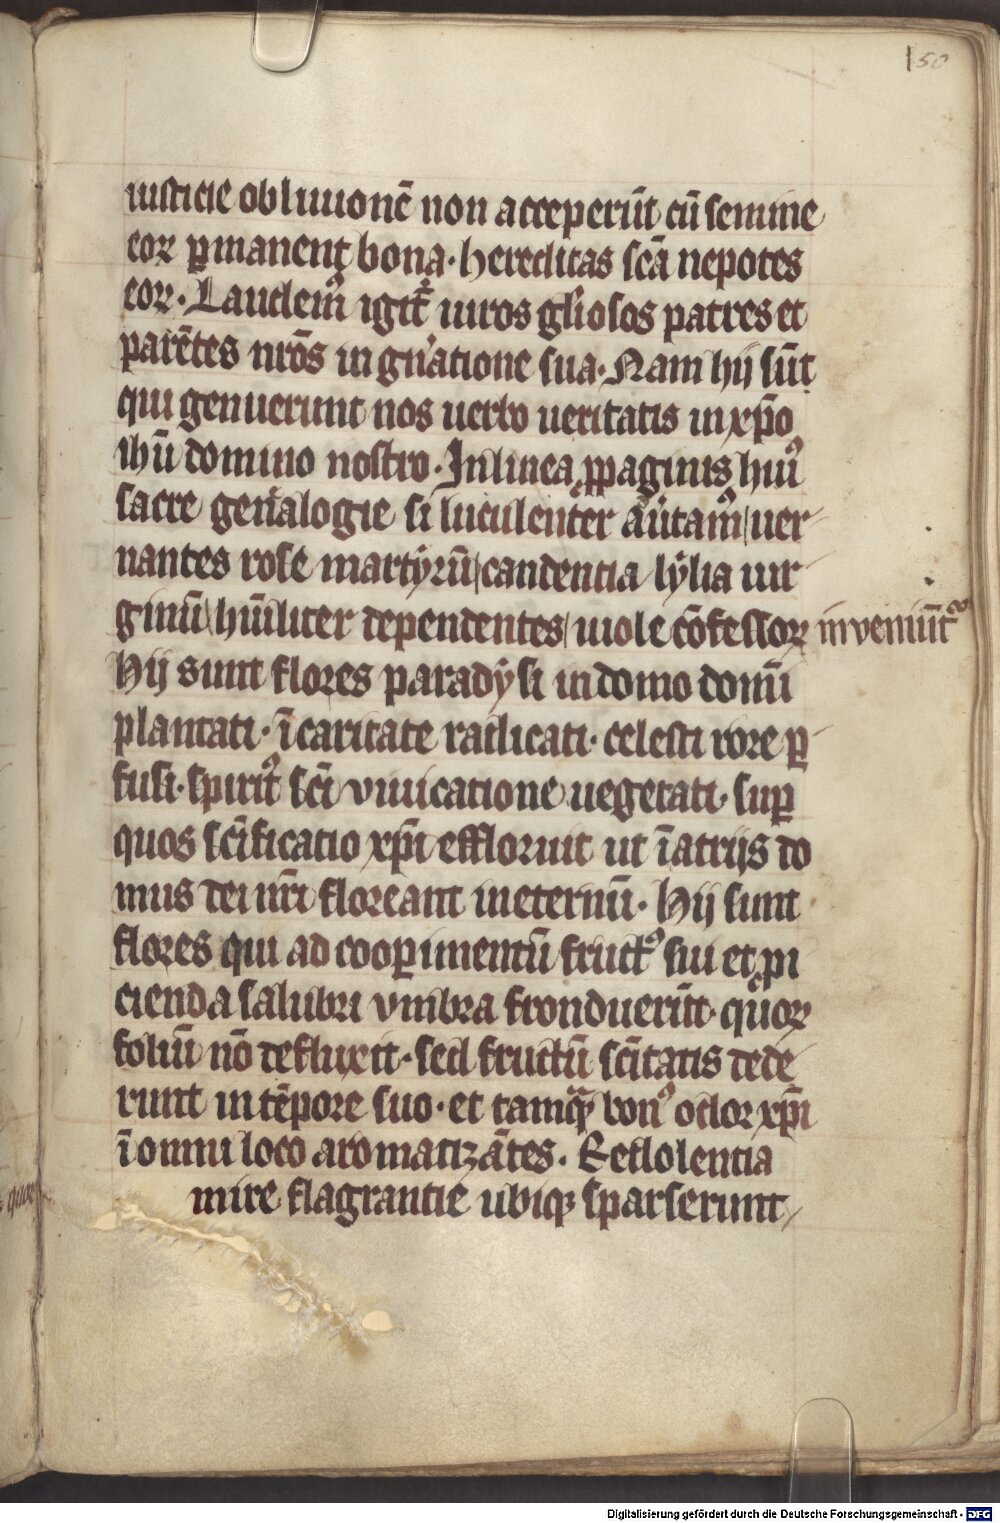 150
iusticie obliuionē non acceperūt cū semine
eoꝝ ꝑmanent bona. hereditas scā nepotes
eoꝝ. Laudemꝰ igit᷑ uiros gl̓iosos patres et
parētes nr̄os in gn̓atione sua. Nam hij sūt
qui genuerunt nos uerbo ueritatis in xp̄o
ihū domino nostro. In linea ꝓpaginis huiꝰ
sacre gen̓alogie si luculenter
nantes rose martẏrū/ candentia lẏlia uir
ginū/ hūiliter dependentes/ uiole cōfessoꝝ inveniūt᷑
Hij sunt flores paradẏsi in domo domī
plantati. ī caritate radicati. celesti rore ꝑ
fusi. spiritꝰ scī viuicatione uegetati. suꝑ
quos scīficatio xp̄i effloruit ut ī atrijs do
mus dei nr̄i floreant in eternū. Hij sunt
flores qui ad cooꝑimentū fructꝰ sui et ꝓi
cienda salubri vmbra fronduerūt. quoꝝ
foliū nō defluxit. sed fructū scītatis dede
runt in tēpore suo. et tamqꝫ bonꝰ odor xp̄i
ī omni loco aromatizātes. Redolentia
mire flagrantie ubiqꝫ sparserunt
Digitalisierung gefördert durch die Deutsche Forschungsgemeinschaft - DFG